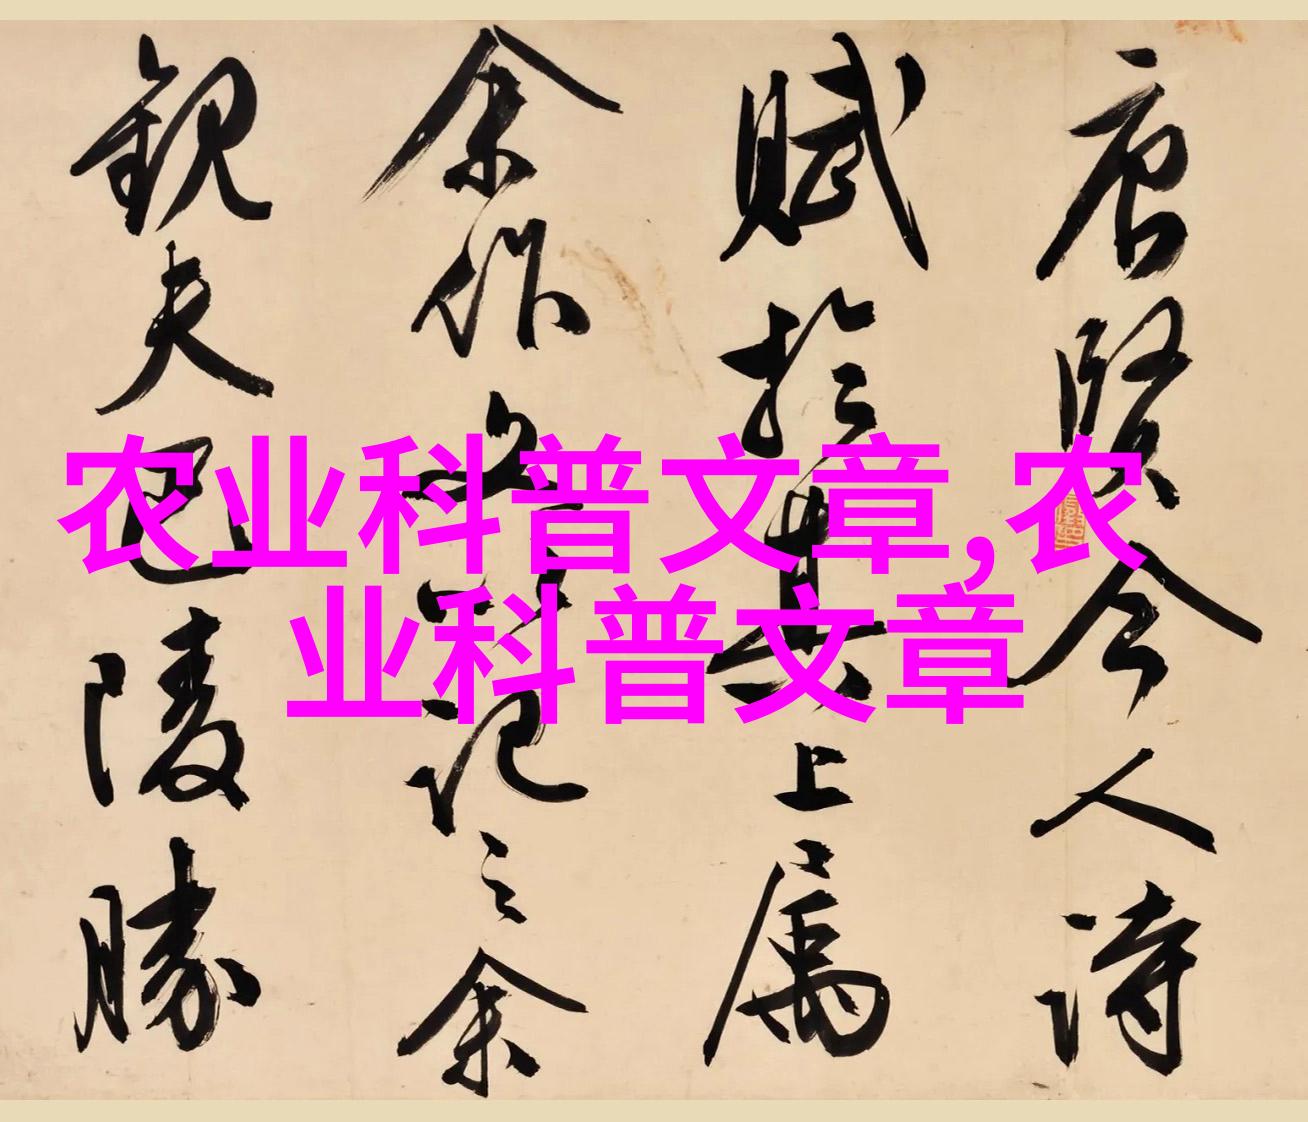 唐賢今人詩
賦於其上屬
余作文以記之余
觀夫巴陵勝
农业科普文章,农
业科普文章